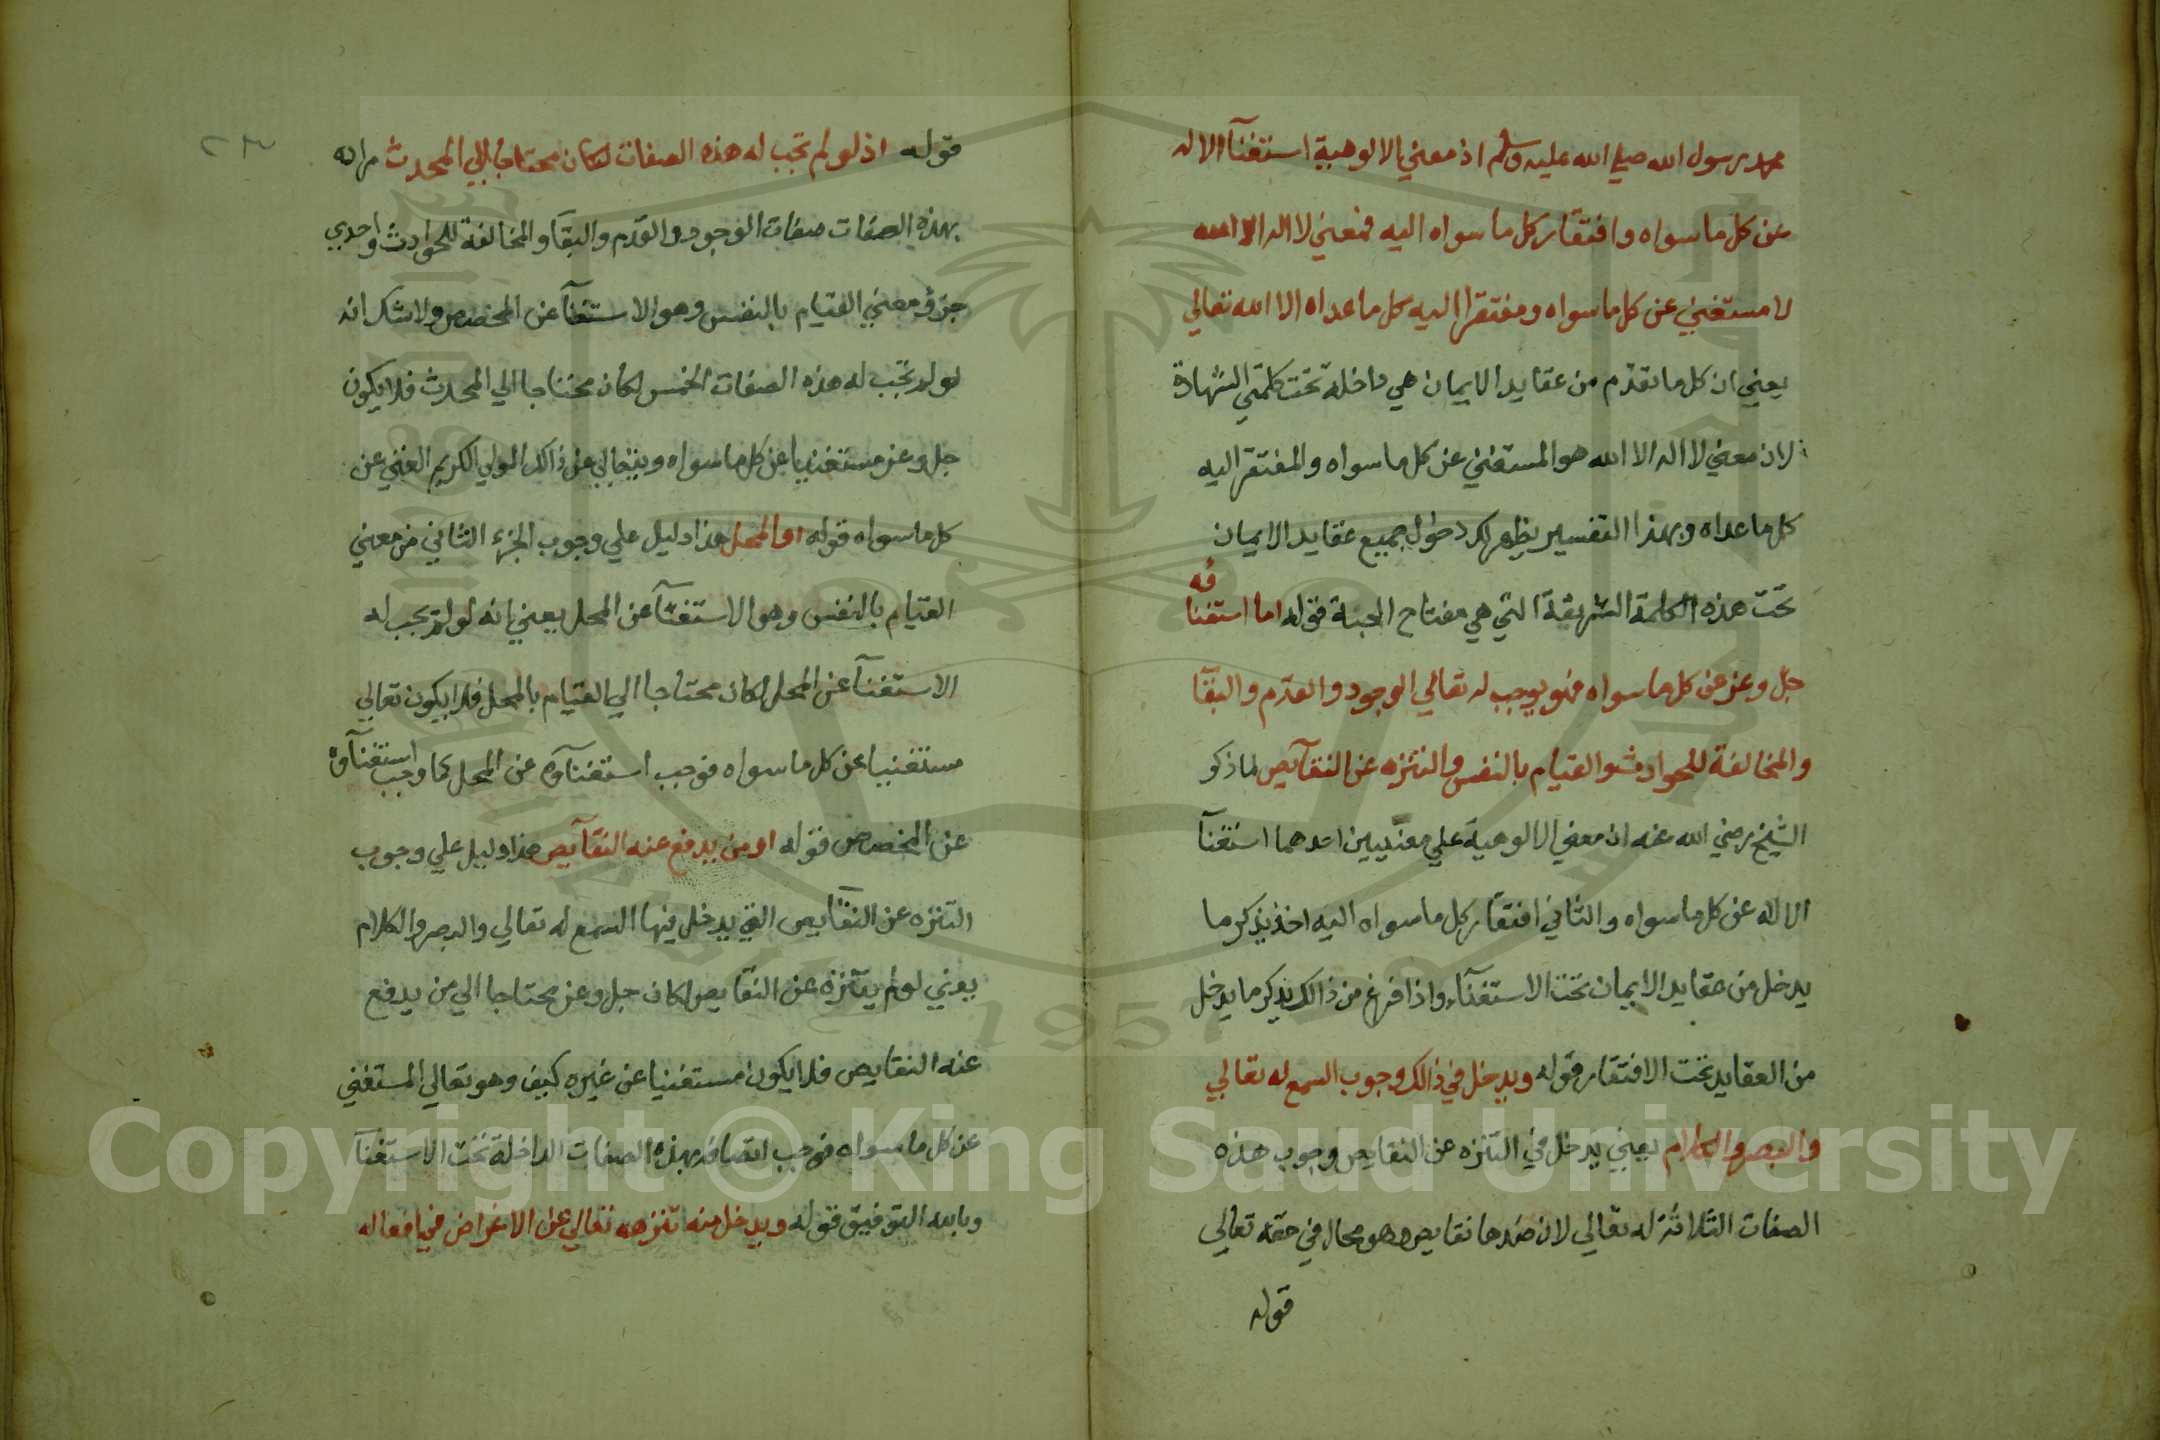 محمد رسول الله صلي الله عليه وسلم اذ معني الالوهية استغنآ الاله
عن كل ما سواه وافتقار كل ما سواه اليه فمعني لا اله الا الله
لا مستغني عن كل ما سواه ومفتقرا اليه كل ما عداه الا الله تعالي
يعني ان كل ما تقدم من عقايد الايمان هي داخلة تحت كلمتي الشهادة
لان معني لا اله الا الله هو المستغني عن كل ما سواه والمفتقر اليه
كل ما عداه وبهذا التفسير يظهر لك دخول جميع عقايد الايمان
تحت هذه الكلمة الشريفة التي هي مفتاح الجنة قوله اما استغنا
ؤه
جل وعز عن كل ما سواه فهو يوجب له تعالي الوجود والقدم والبقآ
والمخالفة للحوادث والقيام بالنفس والتنزه عن النقآيص لما ذكر
الشيخ رضي الله عنه ان معني الالوهية علي معنيين احدهما استغنآ
الاله عن كل ما سواه والثاني افتقار كل ما سواه اليه اخذ يذكر ما
يدخل من عقايد الايمان تحت الاستغنآء واذا فرغ من ذالك يذكر ما يدخل
من العقايد تحت الافتقار قوله ويدخل في ذالك وجوب السمع له تعالي
والبصر والكلام يعني يدخل في التنزه عن النقايص وجوب هذه
الصفات الثلاثة له تعالي لان ضدها نقايص وهو محال في حقه تعالي
قوله
٢٣
قوله اذ لو لم تجب له هذه الصفات لكان محتاجا الي المحدث مراده
بهذه الصفات صفات الوجود والقدم والبقآ والمخالفة للحوادث واحدي
جزؤ معني القيام بالنفس وهو الاستغنآ عن المخصص ولا شك انه
لو لم تجب له هذه الصفات الخمس لكان محتاجا الي المحدث فلا يكون
جل وعز مستغنيا عن كل ما سواه ويتعالي عن ذالك المولي الكريم الغني عن
كل ما سواه قوله او المحل هذا دليل علي وجوب الجزء الثاني من معني
القيام بالنفس وهو الاستغنآ عن المحل يعني انه لو لم يجب له
الاستغنآ عن المحل لكان محتاجا الي القيام بالمحل فلا يكون تعالي
مستغنيا عن كل ما سواه فوجب استغنآوه عن المحل كما وجب استغنآوه
عن المخصص قوله او من يدفع عنه النقآيص هذا دليل علي وجوب
التنزه عن النقآيص التي يدخل فيها السمع له تعالي والبصر والكلام
يعني لو لم يتنزه عن النقايص لكان جل وعز محتاجا الي من يدفع
عنه النقايص فلا يكون مستغنيا عن غيره كيف وهو تعالي المستغني
عن كل ما سواه فوجب اتصافه بهذه الصفات الداخلة تحت الاستغنآ
وبالله التوفيق قوله ويدخل منه تنزهه تعالي عن الاغراض في افعاله
Copyright © King Saud University
1957